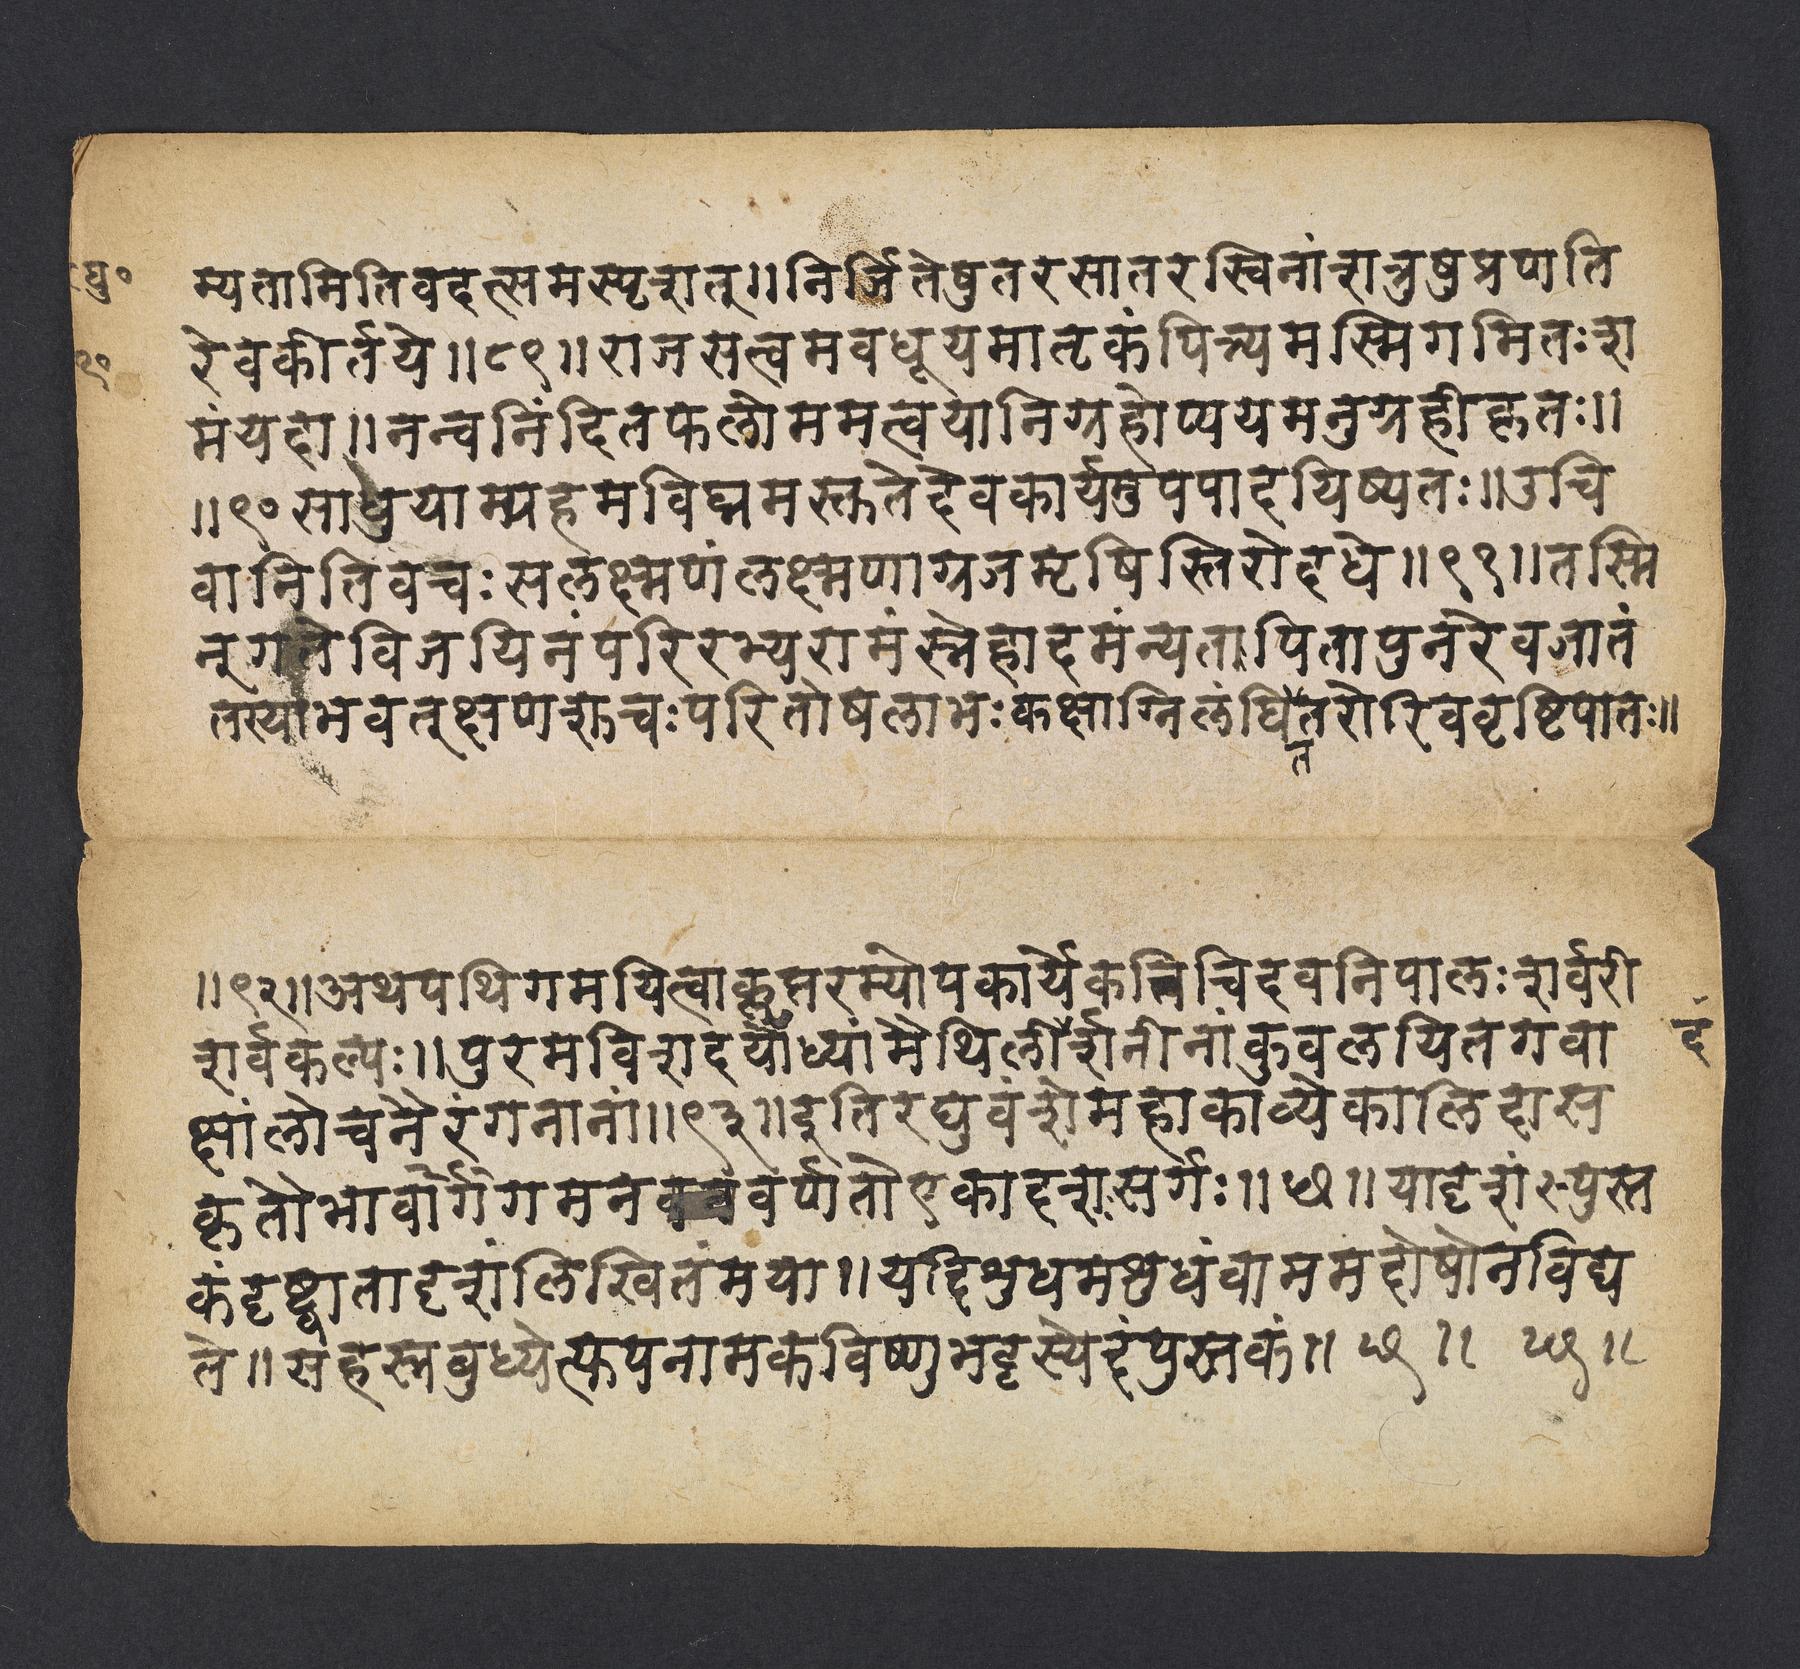 घु॰
९०
म्यतामितिवदत्समस्पृशत्॥निर्जितेषुतरसातरस्विनांशत्रुषुप्रणति
रेवकीर्तये॥८९॥राजसत्वमवधूयमातृकंपित्र्यमस्मिगमितःश
मंयदा॥नन्वनिंदितफलोममत्वयानिग्रहोप्ययमनुग्रहीकृतः॥
॥९०साधुयाम्यहमविघ्नमस्तुतेदेवकार्यमुपपादयिष्यतः॥उचि
वानितिवचःसलक्ष्मणंलक्ष्मणाग्रजमृषिस्तिरोदधे॥९१॥तस्मि
न्गतेविजयिनंपरिरभ्यरामंस्नेहादमंन्यतपितापुनरेवजातं
तस्याभवत्क्षणशुचःपरितोषलाभःकक्षाग्निलंघिततरोरिववृष्टिपातः॥
त
॥९२॥अथपथिगमयित्वाकॢप्तरम्योपकार्येकतिचिदवनिपालःशर्वरी
शर्वकल्पः॥पुरमविशदयोध्यांमैथिलीर्शनीनांकुवलयितगवा
द
क्षांलोचनैरंगनानां॥९३॥इतिरघुवंशेमहाकाव्येकालिदास
कृतौभार्वार्गगमनवर्णतोएकादशसर्गः॥छ॥यादृशंस्पुस्त
कंदृष्ट्वातादृशंलिखितंमया॥यदिशुधमशुधंवाममदोषोनविद्य
ते॥सहस्त्रबुध्येत्फपनामकविष्णुभट्टस्येदंपुस्तकं॥ छ ॥ छ ॥